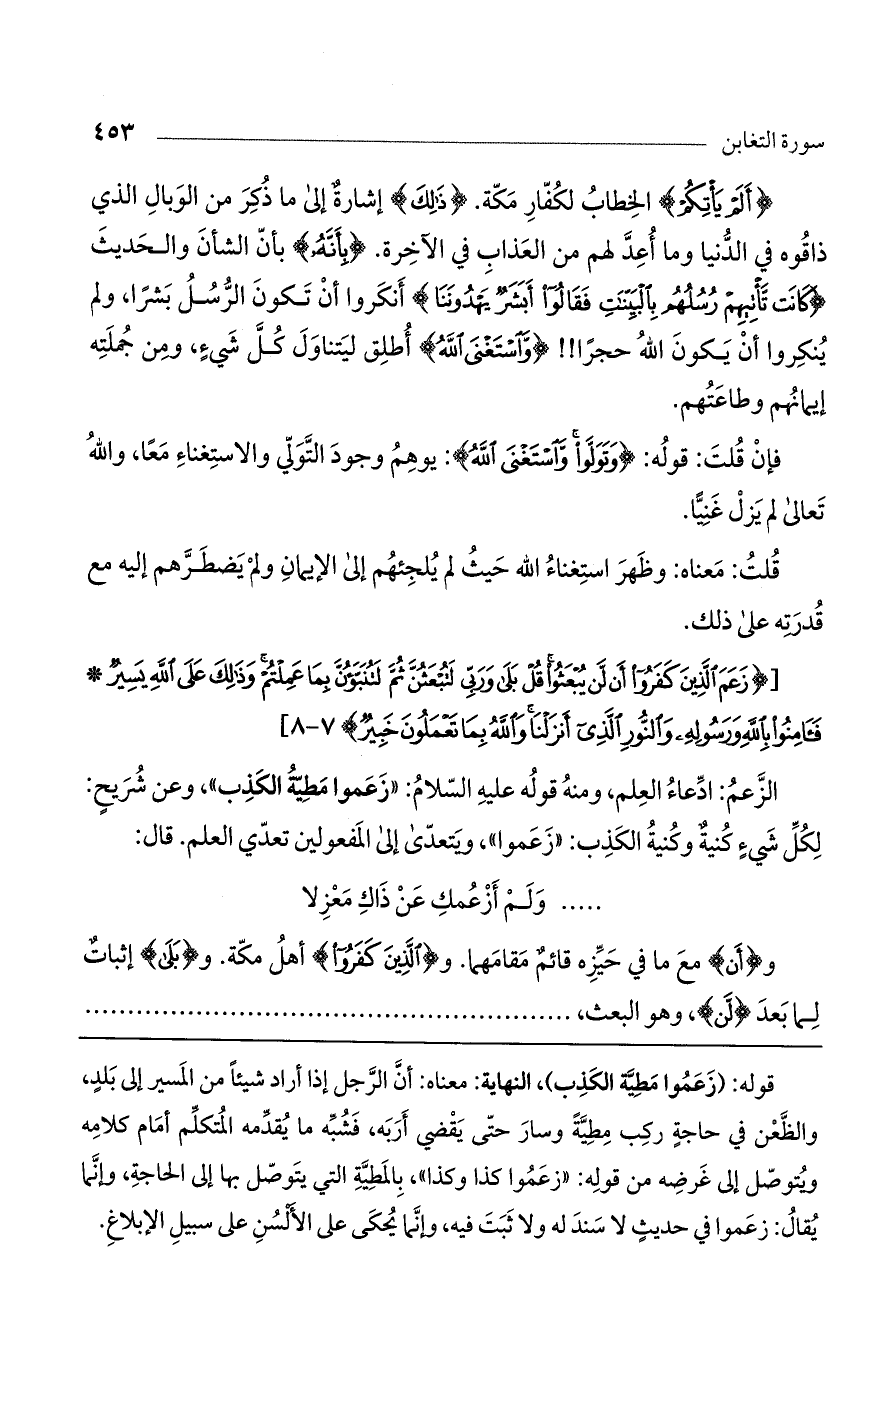 سورة التغابن ــــــــــــــــــــ ٤٥٣
﴿أَلَمْ يَأْتِكُمْ﴾ الخِطابُ لكُفّارِ مَكّة. ﴿ذَٰلِكَ﴾ إشارةٌ إلىٰ ما ذُكِرَ من الوَبالِ الذي
ذاقُوه في الدُّنيا وما أُعِدَّ لهم من العَذابِ في الآخِرة. ﴿بِأَنَّهُۥ﴾ بأنّ الشأنَ والـحَديثَ
﴿كَانَت تَّأْتِيهِمْ رُسُلُهُم بِٱلْبَيِّنَٰتِ فَقَالُوٓا۟ أَبَشَرٌ يَهْدُونَنَا﴾ أَنكَروا أنْ تَـكونَ الرُّسُـلُ بَشرًا، ولم
يُنكِروا أنْ يَـكونَ اللهُ حجرًا!!! ﴿وَّٱسْتَغْنَى ٱللَّهُ﴾ أُطلِق ليَتناوَلَ كُـلَّ شَيءٍ، ومِن جُملَتِه
إيمانُهم وطاعَتُهم.
فإنْ قُلتَ: قولُه: ﴿وَتَوَلَّوا۟ ۚ وَّٱسْتَغْنَى ٱللَّهُ﴾: يوهِمُ وجودَ التَّوَلّي والاستِغناءِ مَعًا، واللهُ
تَعالىٰ لم يَزلْ غَنِيًّا.
قُلتُ: مَعناه: وظَهرَ استِغناءُ الله حَيثُ لم يُلجِئهُم إلىٰ الإيمانِ ولمْ يَضطَـرَّهم إليه مع
قُدرَتِه علىٰ ذلك.
[﴿زَعَمَ ٱلَّذِينَ كَفَرُوٓا۟ أَن لَّن يُبْعَثُوا۟ ۚ قُلْ بَلَىٰ وَرَبِّى لَتُبْعَثُنَّ ثُمَّ لَتُنَبَّؤُنَّ بِمَا عَمِلْتُمْ ۚ وَذَٰلِكَ عَلَى ٱللَّهِ يَسِيرٌ *
فَـَٔامِنُوا۟ بِٱللَّهِ وَرَسُولِهِۦ وَٱلنُّورِ ٱلَّذِىٓ أَنزَلْنَا ۚ وَٱللَّهُ بِمَا تَعْمَلُونَ خَبِيرٌ﴾ ٧-٨]
الزَّعمُ: ادِّعاءُ العِلم، ومنهُ قولُه عليهِ السّلامُ: «زَعَموا مَطيّةُ الكَذِب»، وعن شُرَيحٍ:
لِكُلِّ شَيءٍ كُنيةٌ وكُنيةُ الكَذِب: «زَعَموا»، ويَتعدّىٰ إلىٰ المَفعولين تعدّي العلم. قال:
..... وَلَـمْ أَزْعُمكِ عَنْ ذَاكِ مَعْزِلا
و﴿أَن﴾ معَ ما في حَيِّزِه قائمٌ مَقامَهما. و﴿ٱلَّذِينَ كَفَرُوٓا۟﴾ أهلُ مكّة. و﴿بَلَىٰ﴾ إثباتٌ
لِـما بَعدَ ﴿لَّن﴾، وهو البعث، ........................................................
قوله: (زَعَمُوا مَطِيَّة الكَذِب)، النهاية: معناه: أنَّ الرَّجل إذا أراد شيئاً من المَسير إلى بَلدٍ،
والظَّعْن في حاجةٍ ركِب مِطِيَّةً وسارَ حتّى يَقْضي أرَبَه، فَشُبِّه ما يُقدِّمه المُتكلِّم أمَام كلامِه
ويُتوصّل إلى غَرضِه من قولِه: «زعَمُوا كذا وكذا»، بِالمَطِيَّةِ التي يَتوصّل بها إلى الحَاجةِ، وإنَّما
يُقالُ: زعَموا في حديثٍ لا سَندَ له ولا ثَبَتَ فيه، وإنَّما يُحكَى على الأَلْسُنِ على سبيلِ الإبلاغِ.